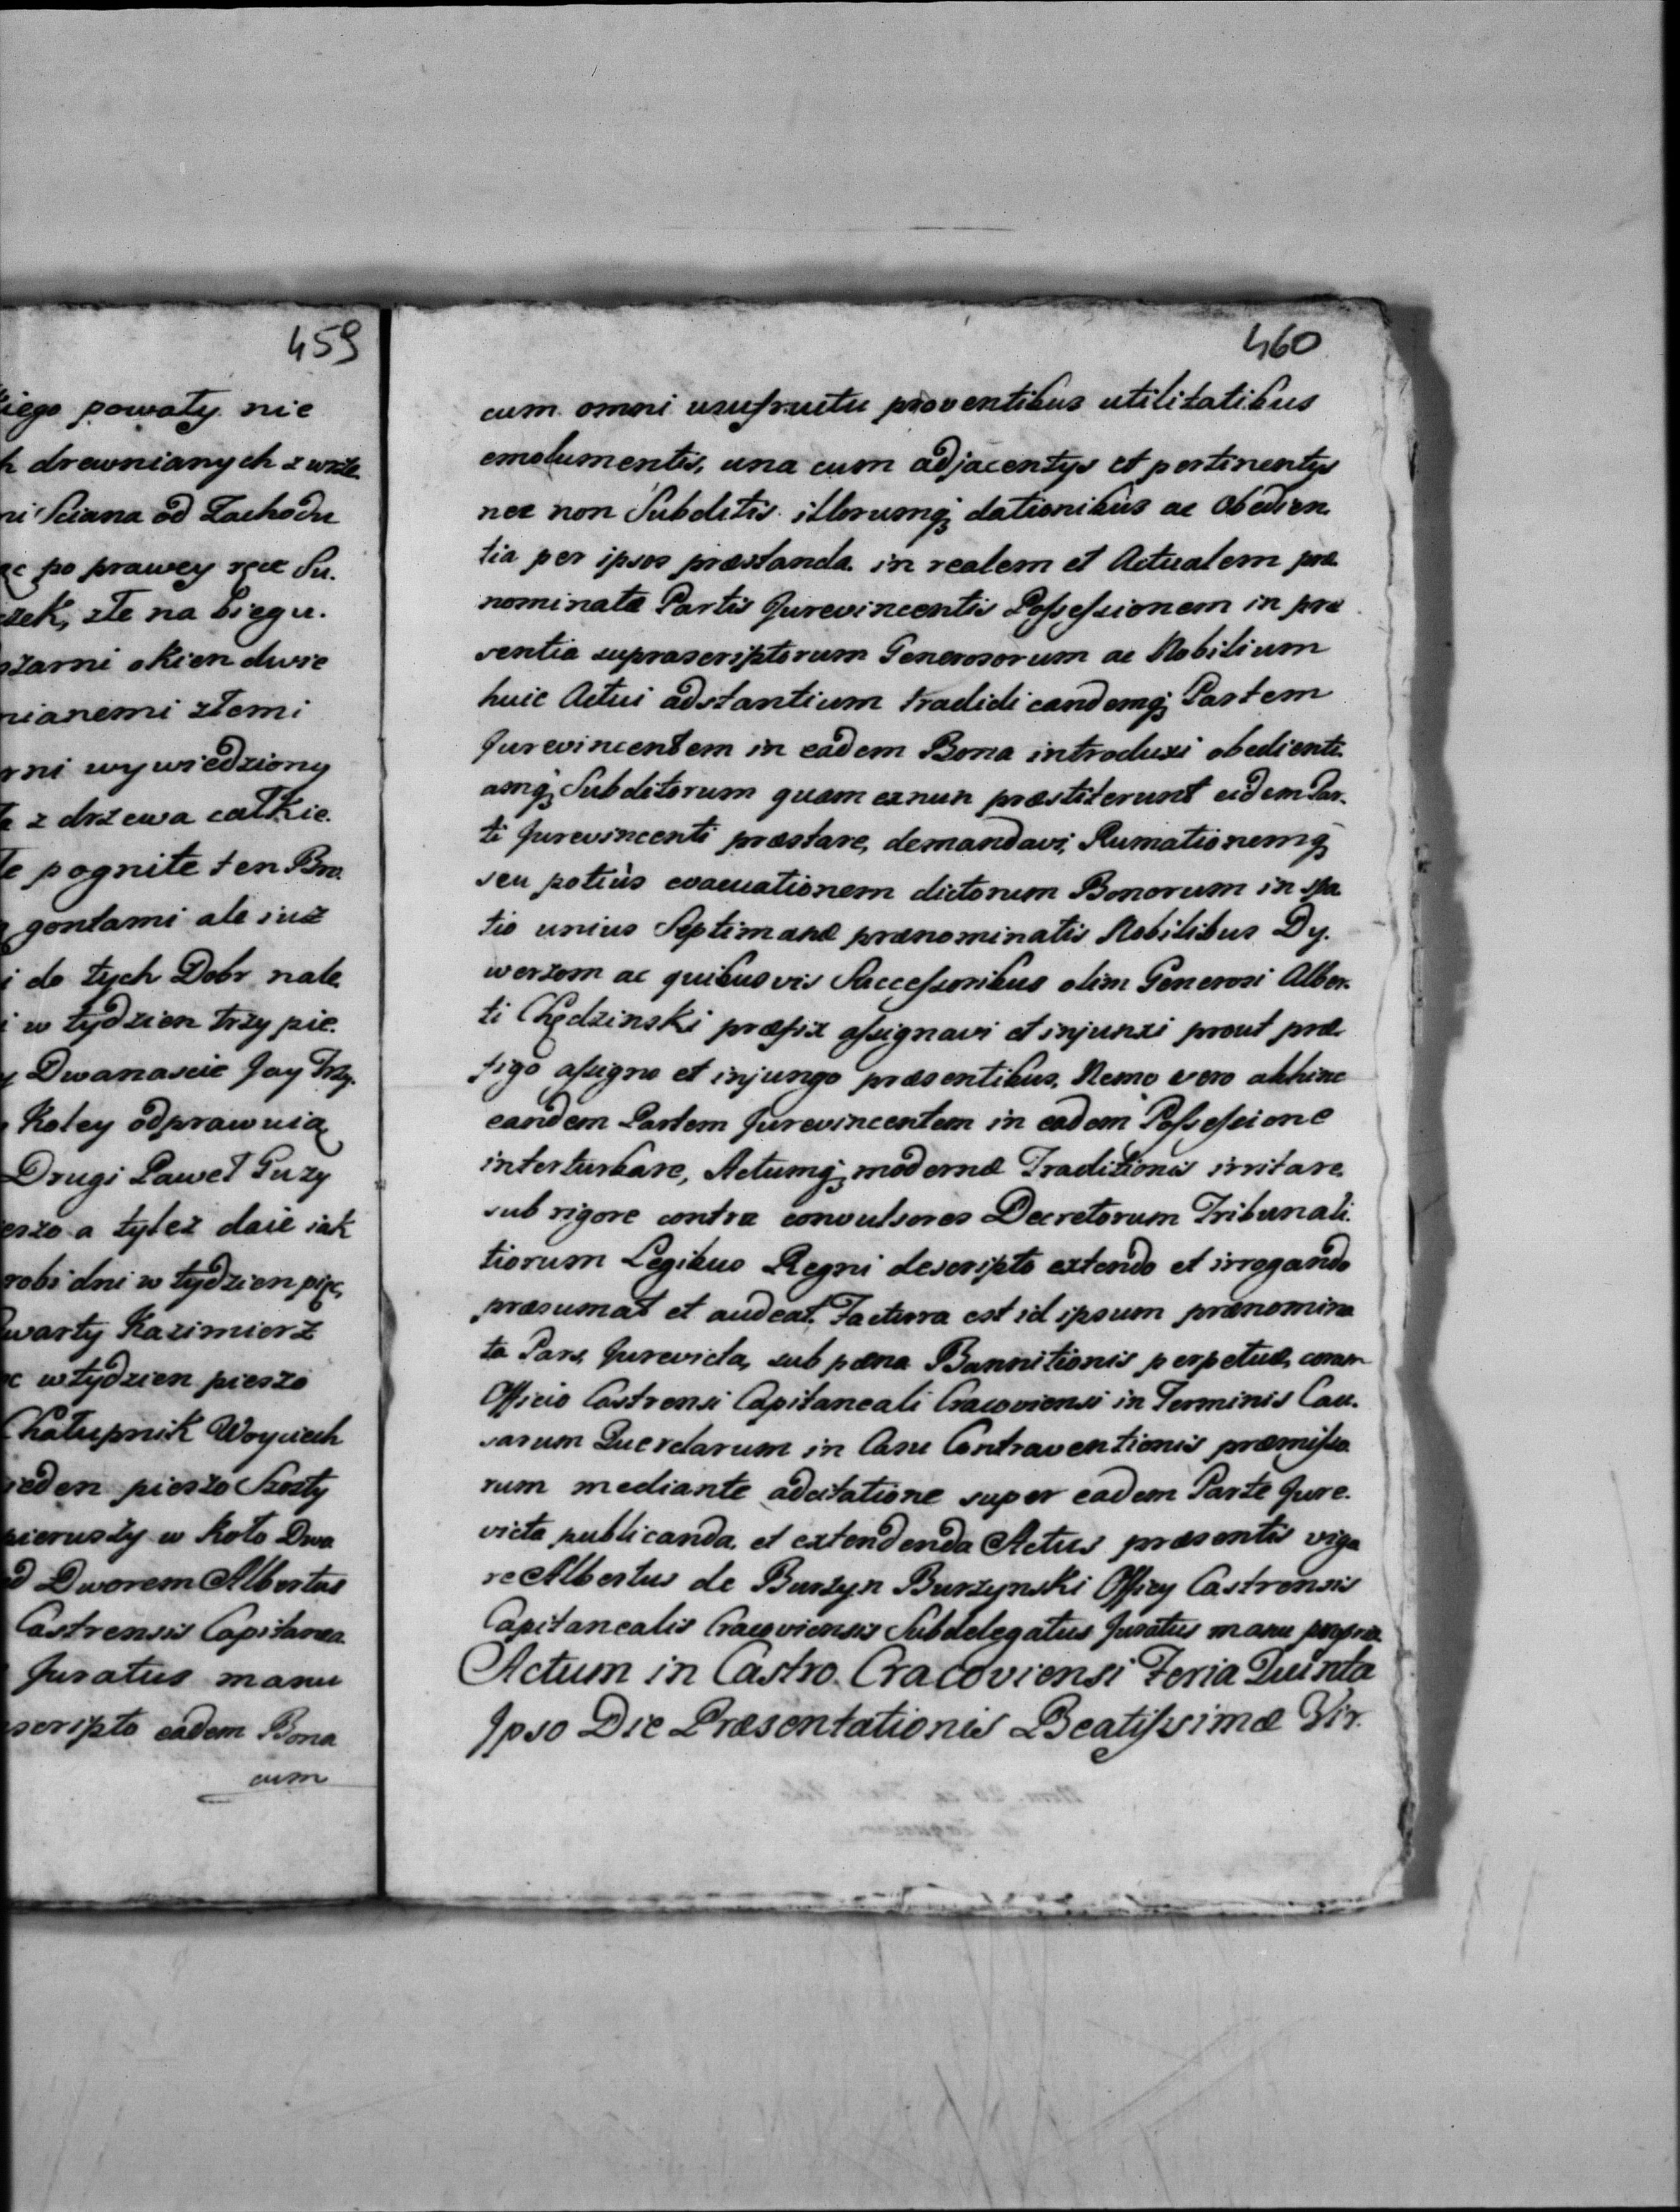 459
iego powały nie
drewnianych z wrze
ni Sciana od Zachodu
po prawey ręce Su.
czek, złe na biegu.
okien dwie
nianemi złemi
rni wywiedziony
z drzewa całkie.
pognite ten Bro.
gontami ale iuż
i do tych Dobr nale.
i w tydzien trzy pie.
Dwanascie Jay Trzy.
Koley odprawuią
Drugi Paweł Guzy
eszo a tyleż daie iak
robi dni w tydzien pięc,
warty Kazimierz
w tydzien pieszo
Chałupnik Woyciech
ieden pieszo Szosty
pieruszy w koło Dwo
d Dworem Albertus
Castrensis Capitanea
Juratus manu
scripto eadem Bona
cum
460
cum omni usufructu proventibus utilitatibus
emolumentis, una cum adjacentys et pertinentys
nec non Subditis illorumq; dationibus ac Obedien.
tia per ipsos præstanda in realem et Actualem præ
nominatæ Partis Jurevincentis Possessionem in præ
sentia suprascriptorum Generosorum ac Nobilium
huic Actui adstantium tradidi eandemq; Partem
Jurevincentem in eadem Bona introduxi obedienti.
amq; Subditorum quam exnun præstiterunt eidem Par.
ti Jurevincenti præstare, demandavi, Rumationemq;
seu potiùs evacuationem dictorum Bonorum in spa
tio unius Septimanæ prænominatis Nobilibus Dy.
werzom ac quibusvis Successoribus olim Generosi Alber.
ti Chędzinski præfixi assignavi et injunxi prout præ.
figo assigno et injungo præsentibus, Nemo vero abhinc
eandem Partem Jurevincentem in eadem Possessione
interturbare, Actumq; modernæ Traditionis irritare
sub rigore contra convulsores Decretorum Tribunali.
tiorum Legibus Regni descripto extendo et irrogando
præsumat et audeat. Factura est id ipsum prænomina
ta Pars Jurevicta, sub pæna Bannitionis perpetuæ, coram
Officio Castrensi Capitaneali Cracoviensi in Terminis Cau.
sarum Querelarum in Casu Contraventionis præmisso
rum mediante adcitatione super eadem Parte Jure.
victa publicanda et extendenda Actus præsentis vigo
re Albertus de Burzyn Burzynski Officy Castrensis
Capitanealis Cracoviensis Subdelegatus Juratus manu propria
Actum in Castro Cracoviensi Feria Quinta
Ipso Die Præsentationis Beatissimæ Vir.